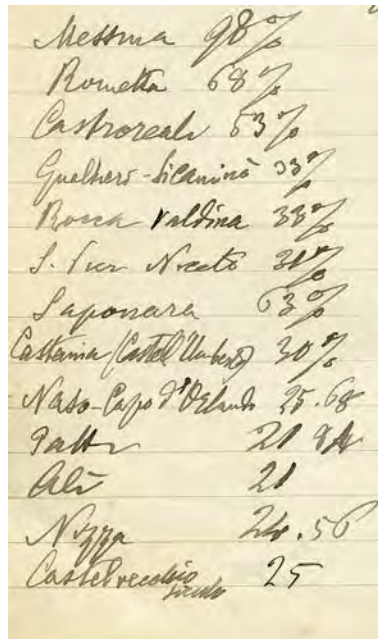 Messina 98%
Rometta 68%
Castroreale 63%
Gualtieri-Sicaminò 33%
Rocca Valdina 33%
S. Pier Niceto 31%
Saponara 63%
Castania (Castel Umberto) 30%
Naso-Capo d'Orlando 25.68
Patti 21 84
Alì 21
Nizza 24.56
Castelvecchio
siculo 25